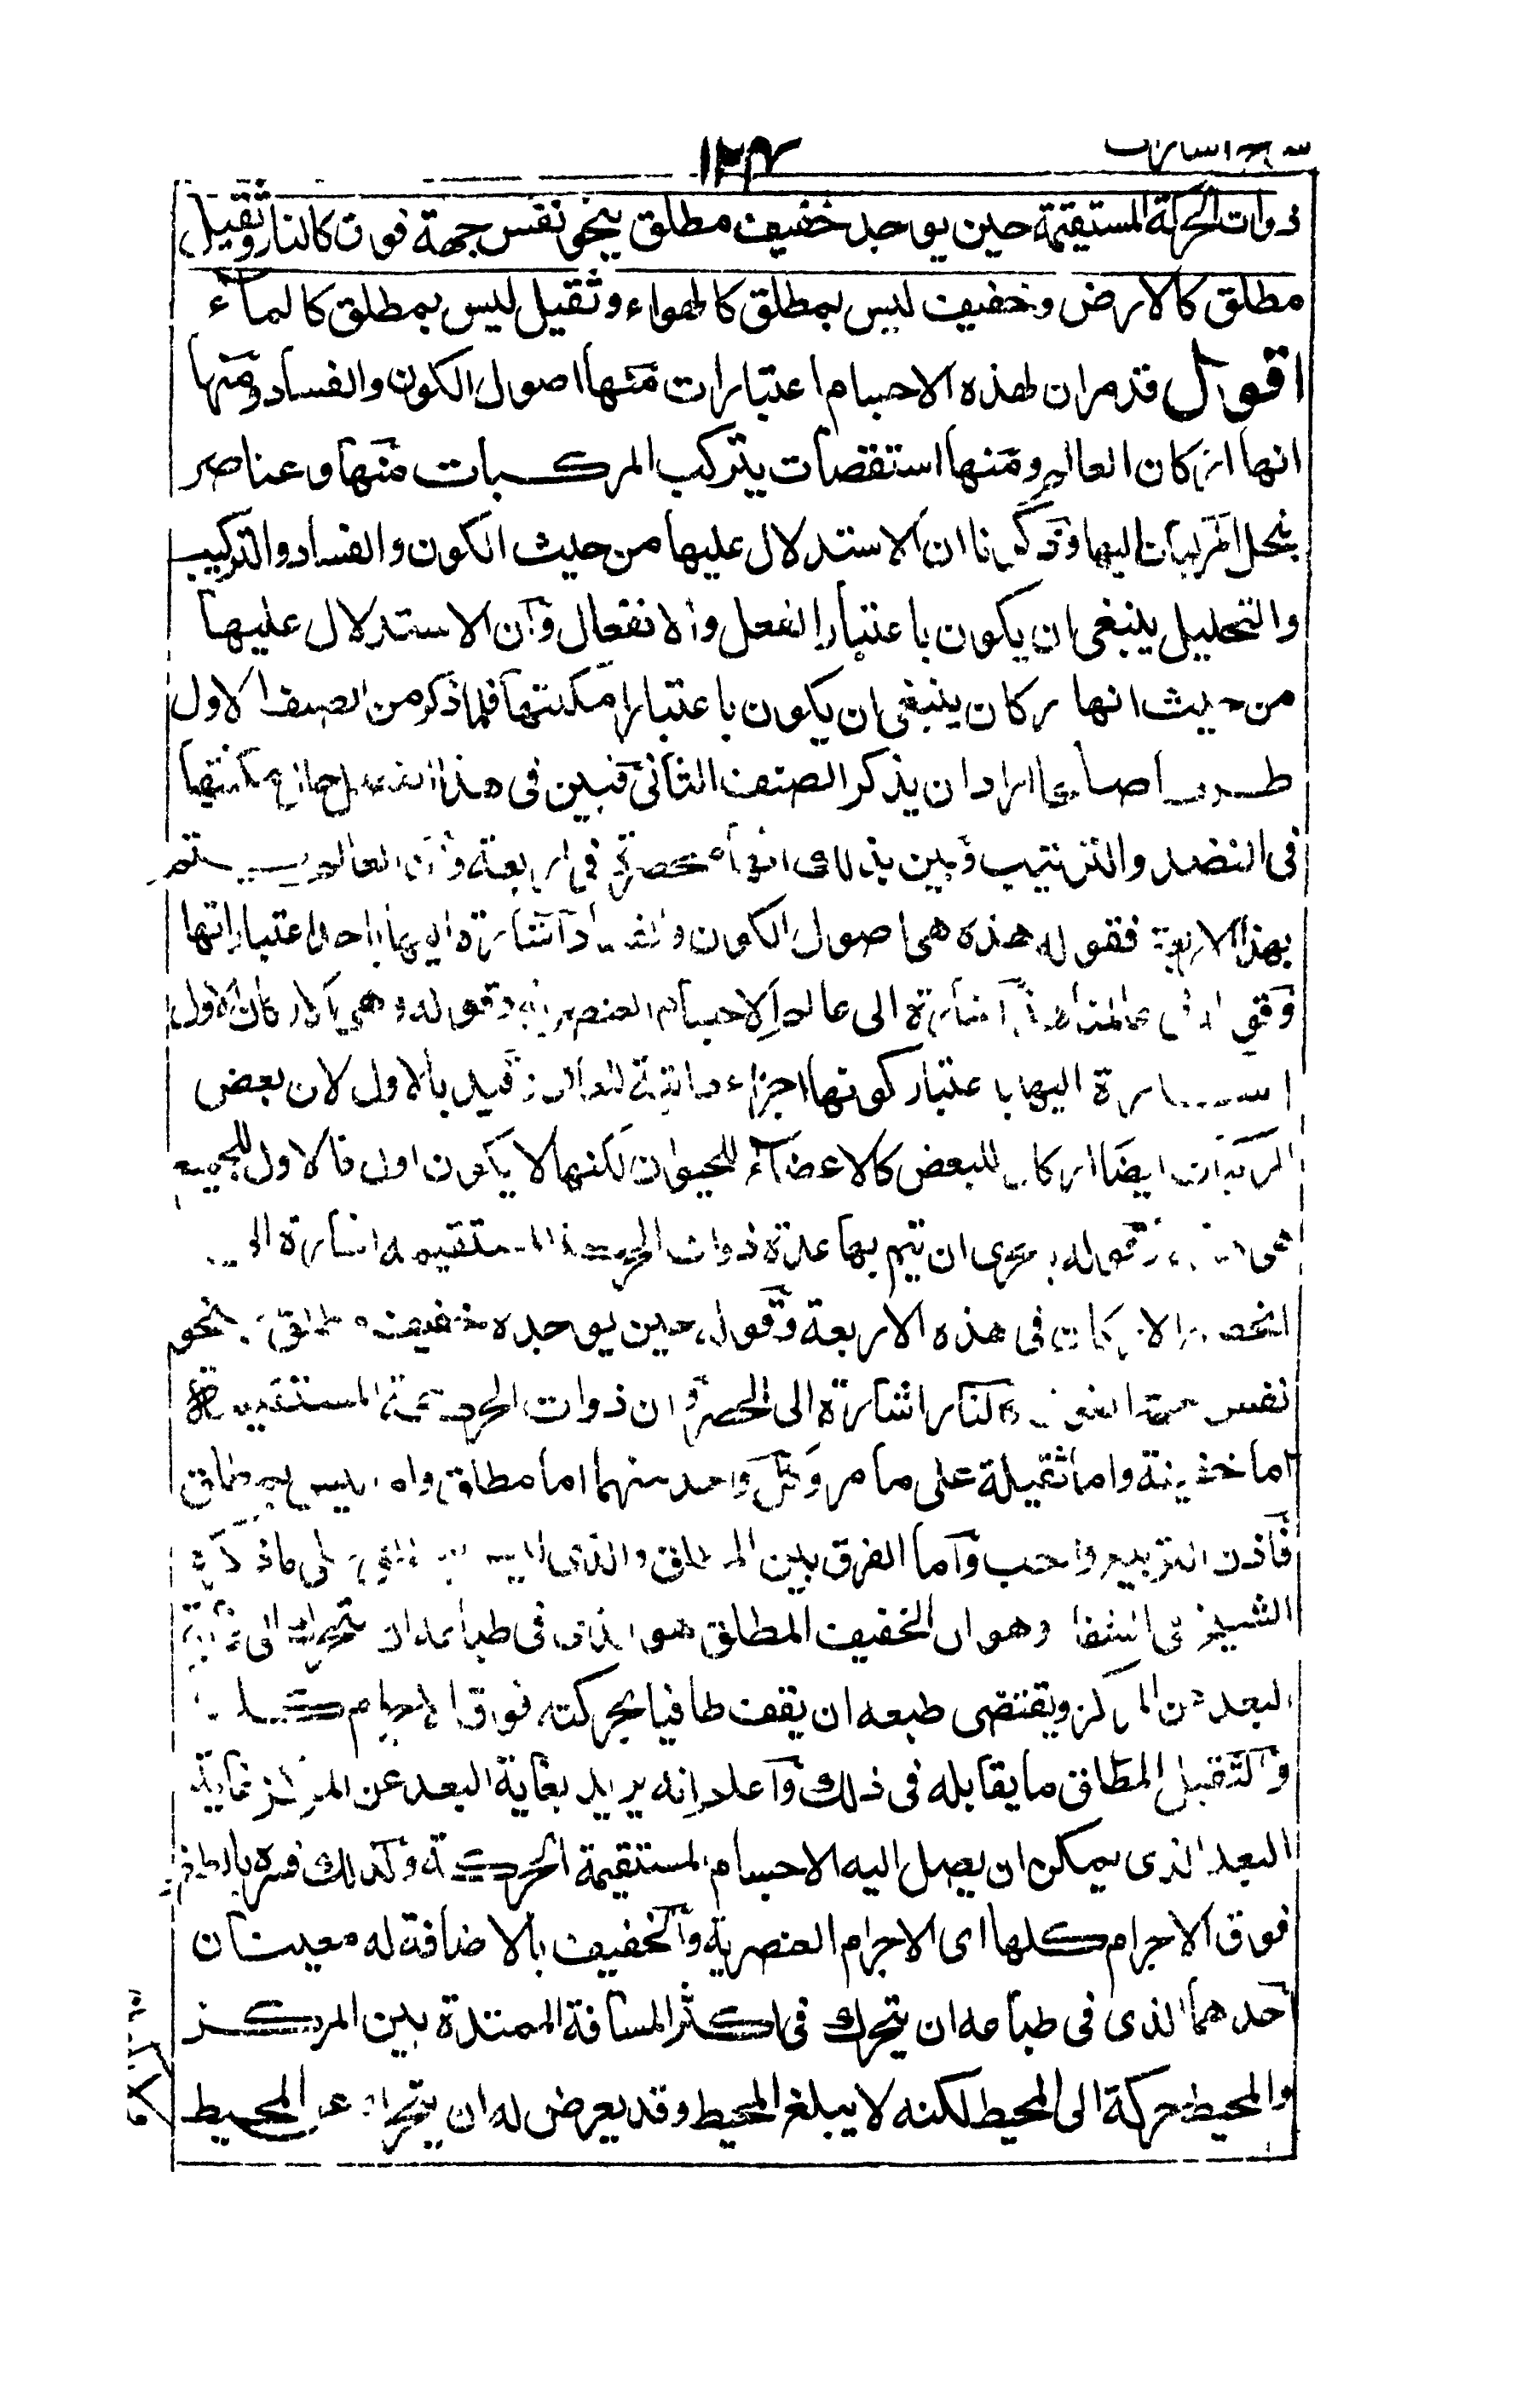 ١٢٤
ذوات الحركة المستقيمة حين يوجد خفيف مطلق ينحو نفس جهة فوق كالنار وثقيل
مطلق كالارض وخفيف ليس بمطلق كالهواء وثقيل ليس بمطلق كالماء
اقول قد مر ان لهذه الاجسام اعتبارات منها اصول الكون والفساد ومنها
انها اركان العالم ومنها استقصات يتركب المركبات منها وعناصر
ينحل المركبات اليها وذكرنا ان الاستدلال عليها من حيث الكون والفساد والتركيب
والتحليل ينبغى ان يكون باعتبار الفعل والانفعال وان الاستدلال عليها
من حيث انها اركان ينبغى ان يكون باعتبار امكنتها فلما ذكر من الصنف الاول
اراد ان يذكر الصنف الثانى فبين فى هذا
فى النضد والترتيب وبين بذلك انها منحصرة فى اربعة وان العالم
بهذا الاربعة فقوله هذه هى اصول الكون والفساد اشارة اليها باحد اعتباراتها
اشارة الى عالم الاجسام العنصرية وقوله وهى الاركان الاول
اشارة اليها باعتبار كونها اجزاء للعالم وقيد بالاول لان بعض
المركبات ايضا اركان للبعض كالاعضاء للحيوان لكنها لا يكون اول فالاول للجميع
هى وقوله ان تتم بها عدة ذوات الحركة المستقيمه اشارة الى
انحصار الاركان فى هذه الاربعة وقوله حين يوجده خفيف مطلق ينحو
نفس جهة الفوق كالنار اشارة الى الحصر وان ذوات الحركة المستقيمة
اما خفيفة واما ثقيلة على ما مر وكل واحد منهما اما مطلق واما ليس بمطلق
فاذن التربيع واجب واما الفرق بين المطلق والذى ليس على ما ذكره
الشيخ فى الشفا وهو ان الخفيف المطلق هو الذى فى طباعه ان يتحرك الى غاية
البعد عن المركز ويقتضى طبعه ان يقف طافيا بحركته فوق الاجرام كلها
والثقيل المطلق ما يقابله فى ذلك واعلم انه يريد بغاية البعد عن المركز غاية
البعد الذى يمكن ان يصل اليه الاجسام المستقيمة الحركة وكذلك
فوق الاجرام كلها اى الاجرام العنصرية والخفيف بالاضافة له معنيان
احدهما الذى فى طباعه ان يتحرك فى اكثر المسافة الممتدة بين المركز
والمحيط حركة الى المحيط لكنه لا يبلغ المحيط وقد يعرض له ان يتحرك عن المحيط